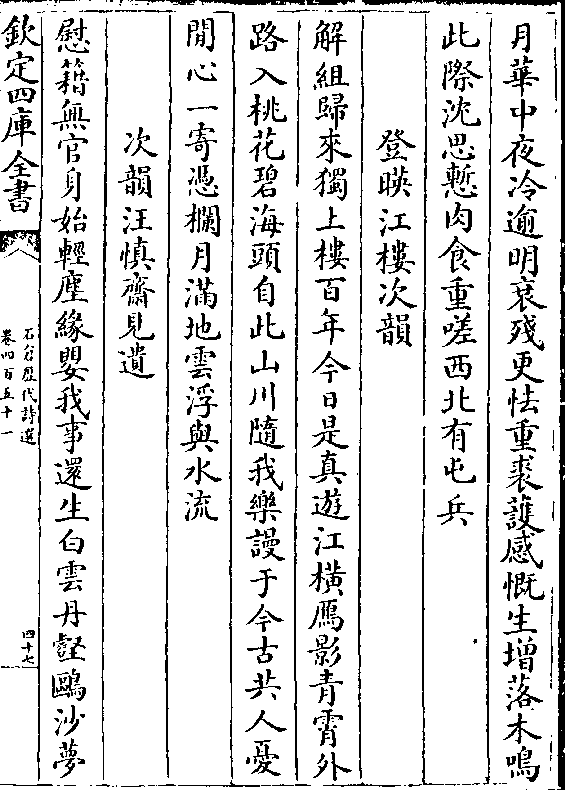 月華中夜冷逾明衰殘更怯重裘護感慨生增落木鳴
此際沈思慙肉食重嗟西北有屯兵
登暎江樓次韻
解組歸來獨上樓百年今日是真遊江橫鴈影青霄外
路入桃花碧海頭自此山川隨我樂謾于今古共人憂
閒心一寄憑欄月滿地雲浮與水流
次韻汪慎齋見遺
慰籍無官身始輕塵緣嬰我事還生白雲丹壑鷗沙夢
欽定四庫全書
石倉歷代詩選
卷四百五十一
四十七